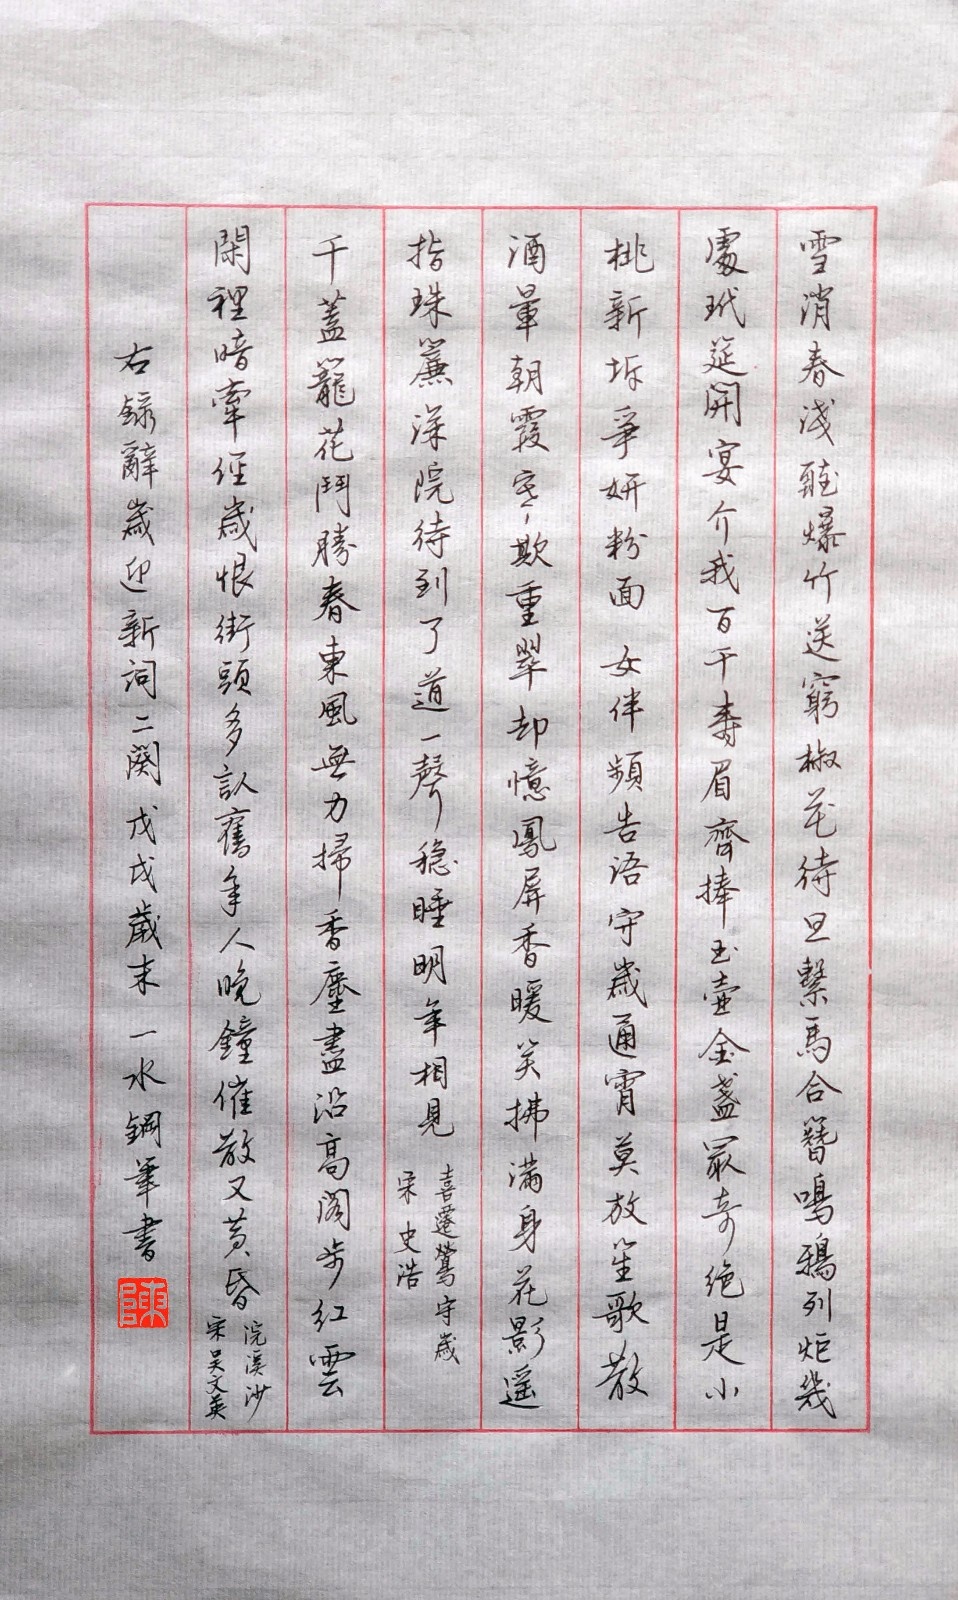 雪消春淺聽爆竹送窮椒花待旦繫馬合簪鳴鴉列炬幾
處玳筵開宴介我百千壽眉齊捧玉壺金盞最奇絕是小
桃新坼爭妍粉面女伴頻告語守歲通宵莫放笙歌散
酒暈朝霞寒欺重翠却憶鳳屏香暖笑拂滿身花影遥
指珠簾深院待到了道一聲穩睡明年相見
喜遷鶯守歲
宋史浩
千蓋籠花鬥勝春東風無力掃香塵盡沿高閣步紅雲
閑裡暗牽經歲恨街頭多認舊年人晚鐘催散又黃昏
浣溪沙
宋吴文英
右録辭歲迎新詞二闋戊戌歲末一水鋼筆書
陳